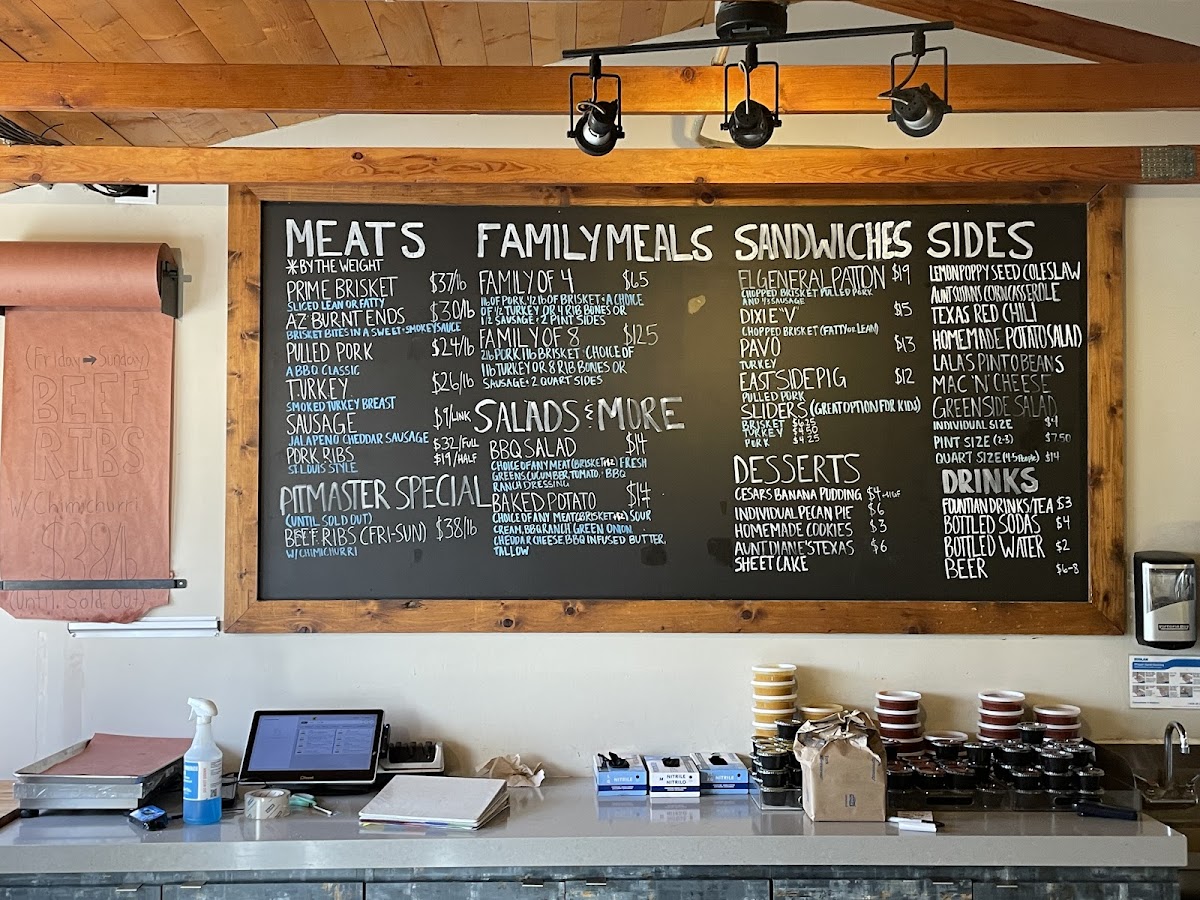 (Friday ➡ Sunday)
BEEF
RIBS
W/ Chimichurri
(Until Sold Out)
MEATS
*BY THE WEIGHT
PRIME BRISKET $37/lb
SLICED LEAN OR FATTY
AZ BURNT ENDS $30/lb
BRISKET BITES IN A SWEET+SMOKEY SAUCE
PULLED PORK $24/lb
A BBQ CLASSIC
TURKEY $26/lb
SMOKED TURKEY BREAST
SAUSAGE $9/LINK
JALAPENO CHEDDAR SAUSAGE
PORK RIBS $32/FULL
ST. LOUIS STYLE $19/HALF
PITMASTER SPECIAL
(UNTIL SOLD OUT)
BEEF RIBS (FRI-SUN) $38/lb
W/ CHIMICHURRI
FAMILY MEALS
FAMILY OF 4 $65
1lb OF PORK, 1/2 lb OF BRISKET + A CHOICE
OF 1/2 TURKEY OR 4 RIB BONES OR
1/2 SAUSAGE + 2 PINT SIDES
FAMILY OF 8 $125
2lb PORK 1lb BRISKET + CHOICE OF
1lb TURKEY OR 8 RIB BONES OR
SAUSAGE + 2 QUART SIDES
SALADS & MORE
BBQ SALAD $14
CHOICE OF ANY MEAT (BRISKET +$2) FRESH
GREENS, CUCUMBER, TOMATO, + BBQ
RANCH DRESSING
BAKED POTATO $14
CHOICE OF ANY MEAT (BRISKET +$2) SOUR
CREAM, BBQ RANCH GREEN ONION
CHEDDAR CHEESE, BBQ INFUSED BUTTER,
TALLOW
SANDWICHES
EL GENERAL PATTON $19
CHOPPED BRISKET PULLED PORK
AND 1/3 SAUSAGE
DIXIE "V" $15
CHOPPED BRISKET (FATTY OR LEAN)
PAVO $13
TURKEY
EAST SIDE PIG $12
PULLED PORK
SLIDERS (GREAT OPTION FOR KIDS)
BRISKET $6.25
TURKEY $4.50
PORK $4.25
DESSERTS
CESARS BANANA PUDDING $4
INDIVIDUAL PECAN PIE $6
HOMEMADE COOKIES $3
AUNT DIANE'S TEXAS $6
SHEET CAKE
SIDES
LEMON POPPY SEED COLESLAW
AUNT SUSANS CORN CASSEROLE
TEXAS RED CHILI
HOMEMADE POTATO SALAD
LALA'S PINTO BEANS
MAC 'N' CHEESE
GREEN SIDE SALAD
INDIVIDUAL SIZE $4
PINT SIZE (2-3) $7.50
QUART SIZE (4-5 People) $14
DRINKS
FOUNTIAN DRINKS/TEA $3
BOTTLED SODAS $4
BOTTLED WATER $2
BEER $6-8
NITRILE
NITRILE
NITRILO
NITRILE